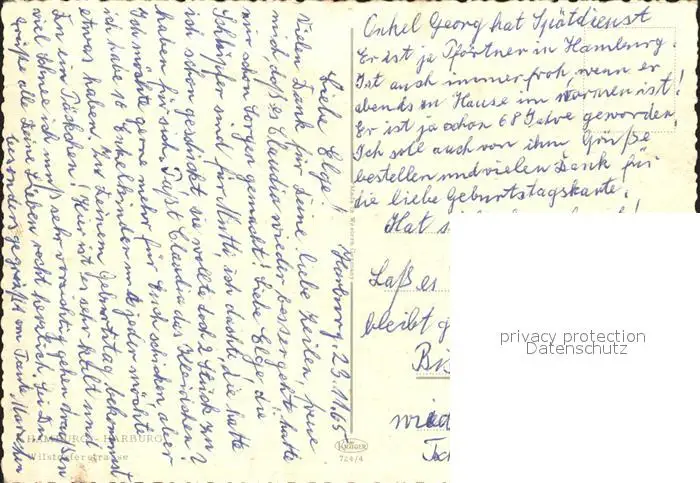 Harburg 23.1.65
Liebe Elge!
Vielen Dank für Deine liebe Zeilen, freue
mich daß es Claudia wieder besser geht hatte
mir schon Sorgen gemacht! Liebe Elge die
Schlüpfer sind für Mutti, ich dachte, die hatte
ich schon geschickt sie wollte doch 2 Stück zu
haben für sich. Paßt Claudia das Kleidchen?
Ich möchte gerne mehr für Euch schicken aber
ich habe 16 Enkelkinder und jeder möchte
etwas haben. Zu Deinem Geburtstag bekommst
Du ein Päckchen! Hier ist es sehr kalt und
viel Schnee ich muß sehr vorsichtig gehen draußen
Grüße alle Deine Lieben recht herzlich. Sei Du
besonders gegrüßt von Tante
HAMBURG-HARBURG
Wilstorferstrasse
KRÜGER
724/4
Onkel Georg hat Spätdienst
Er ist ja Pförtner in Hamburg.
Ist auch immer froh, wenn er
abends in Hause im warmen ist!
Er ist ja schon 68 Jahre geworden!
Ich soll auch von ihm Grüße
bestellen und vielen Dank für
die liebe Geburtstagskarte.
Hat
Laß es
bleibt
wied
privacy protection
Datenschutz